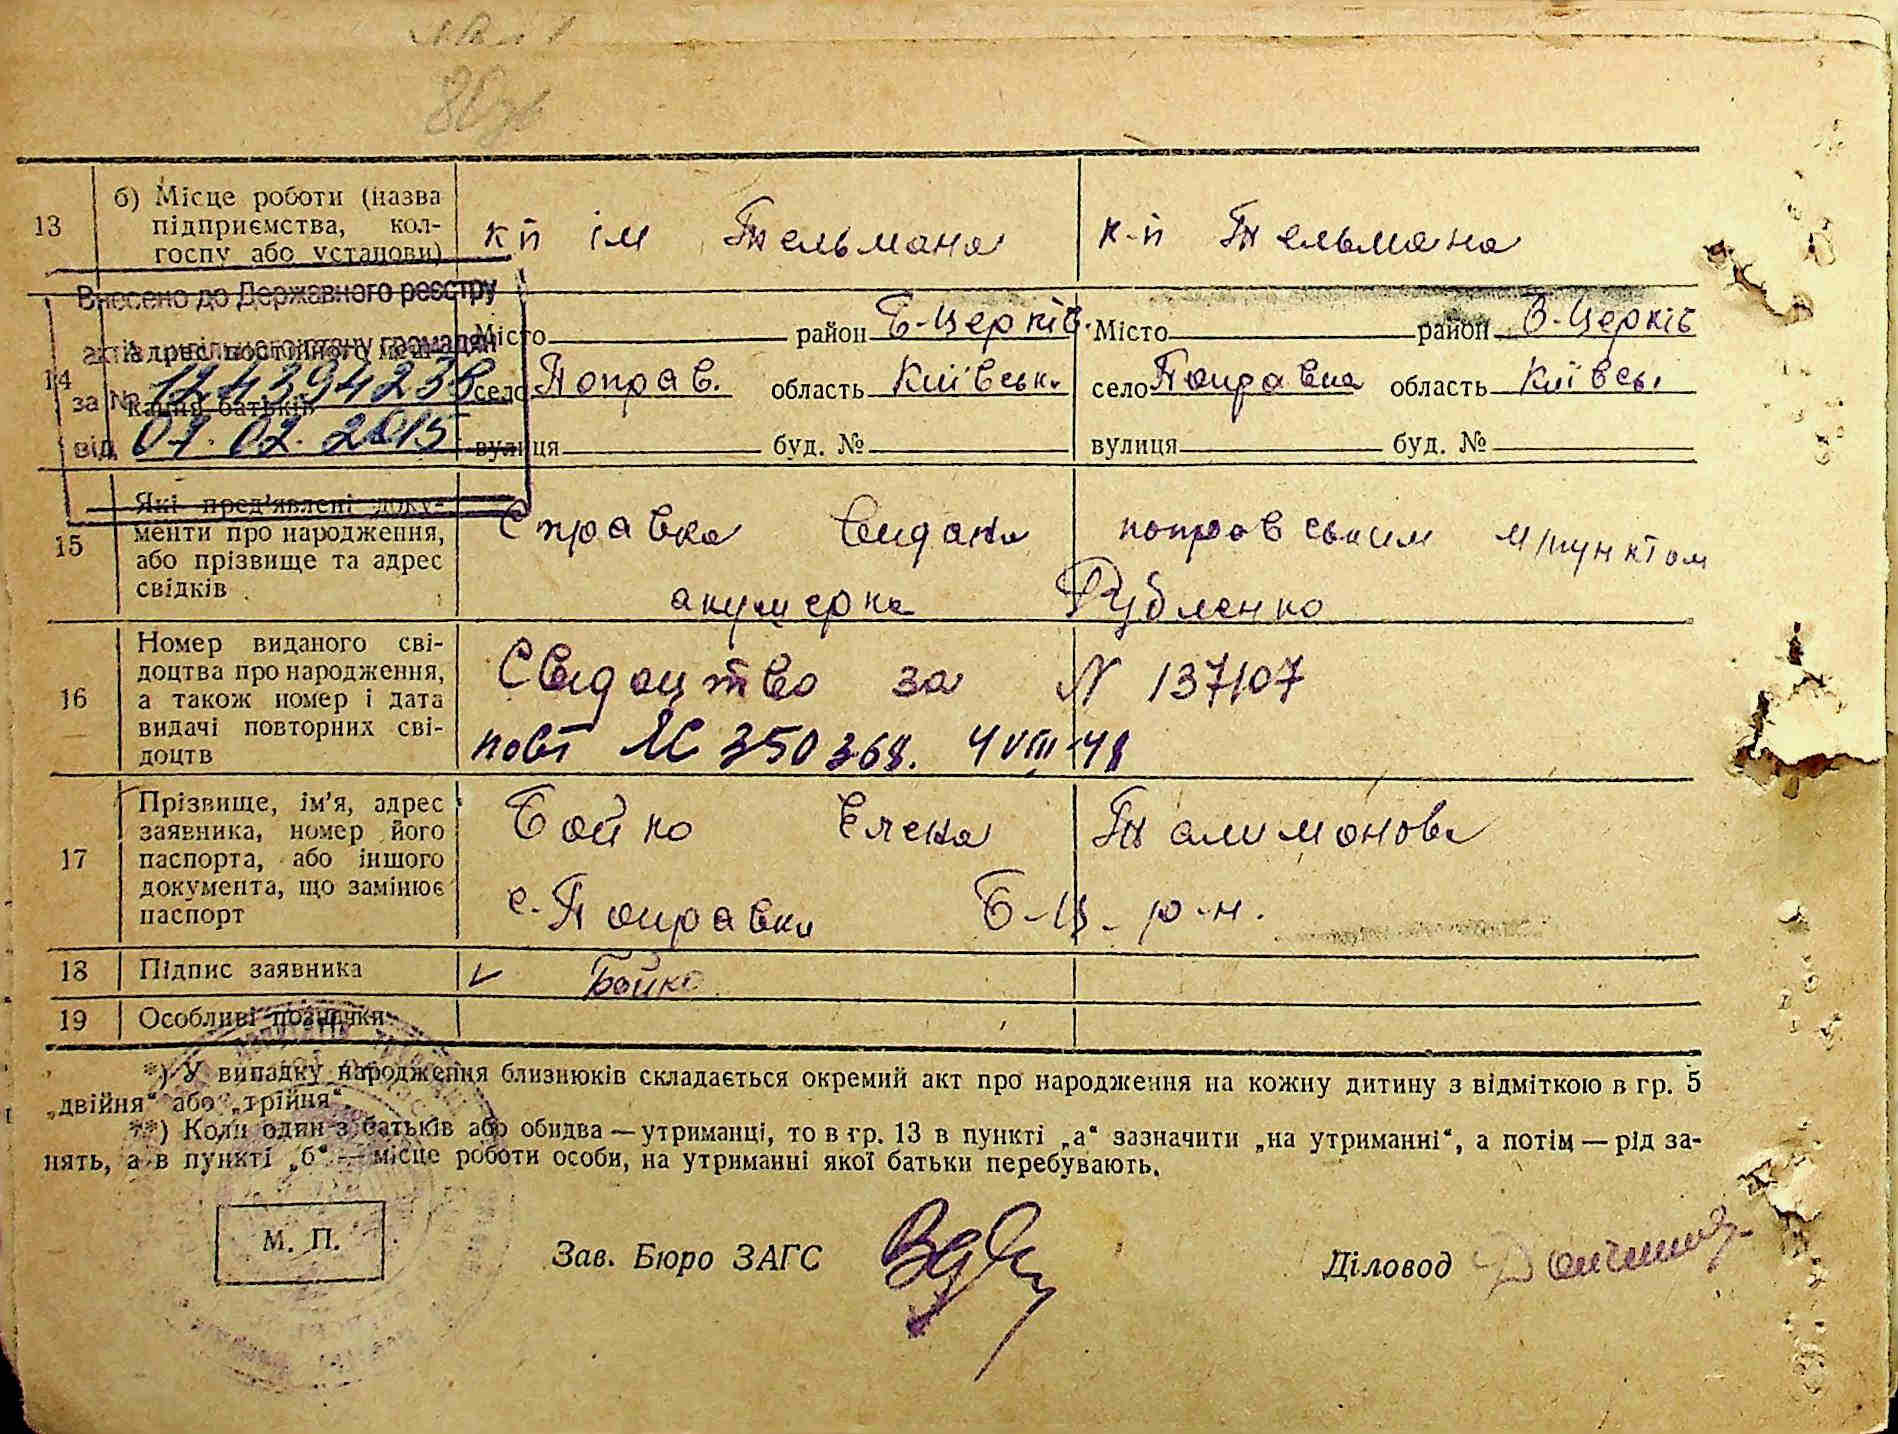 13 б) Місце роботи (назва підприємства, кол-госпу або установи)
к-п ім Тельмана
к-п Тельмана
Внесено до Державного реєстру
актів цивільного стану громадян
за №
від 07.02.2015
14 Адрес постійного меш-
кання батьків
Місто район Б-Церків.
село Поправ. область Київськ.
вулиця буд. №
Місто район Б-Церків
село Поправка область Київсь.
вулиця буд. №
15 Які пред'явлені доку-
менти про народження,
або прізвище та адрес
свідків
Справка видана поправським м/пунктом
акушерка Рубленко
16 Номер виданого сві-
доцтва про народження,
а також номер і дата
видачі повторних сві-
доцтв
Свидоцтво за N 137107
повт 350368. 4 VIII 48
17 Прізвище, ім'я, адрес
заявника, номер його
паспорта, або іншого
документа, що замінює
паспорт
Бойко Елена Талимоновa
с. Поправки Б-Ц. р-н.
18 Підпис заявника
v Бойко
19 Особливі позначки
*) У випадку народження близнюків складається окремий акт про народження на кожну дитину з відміткою в гр. 5
„двійня“ або „трійня“.
**) Коли один з батьків або обидва — утриманці, то в гр. 13 в пункті „а“ зазначити „на утриманні“, а потім — рід за-
нять, а в пункті „б“ — місце роботи особи, на утриманні якої батьки перебувають.
М. П.
Зав. Бюро ЗАГС
Діловод